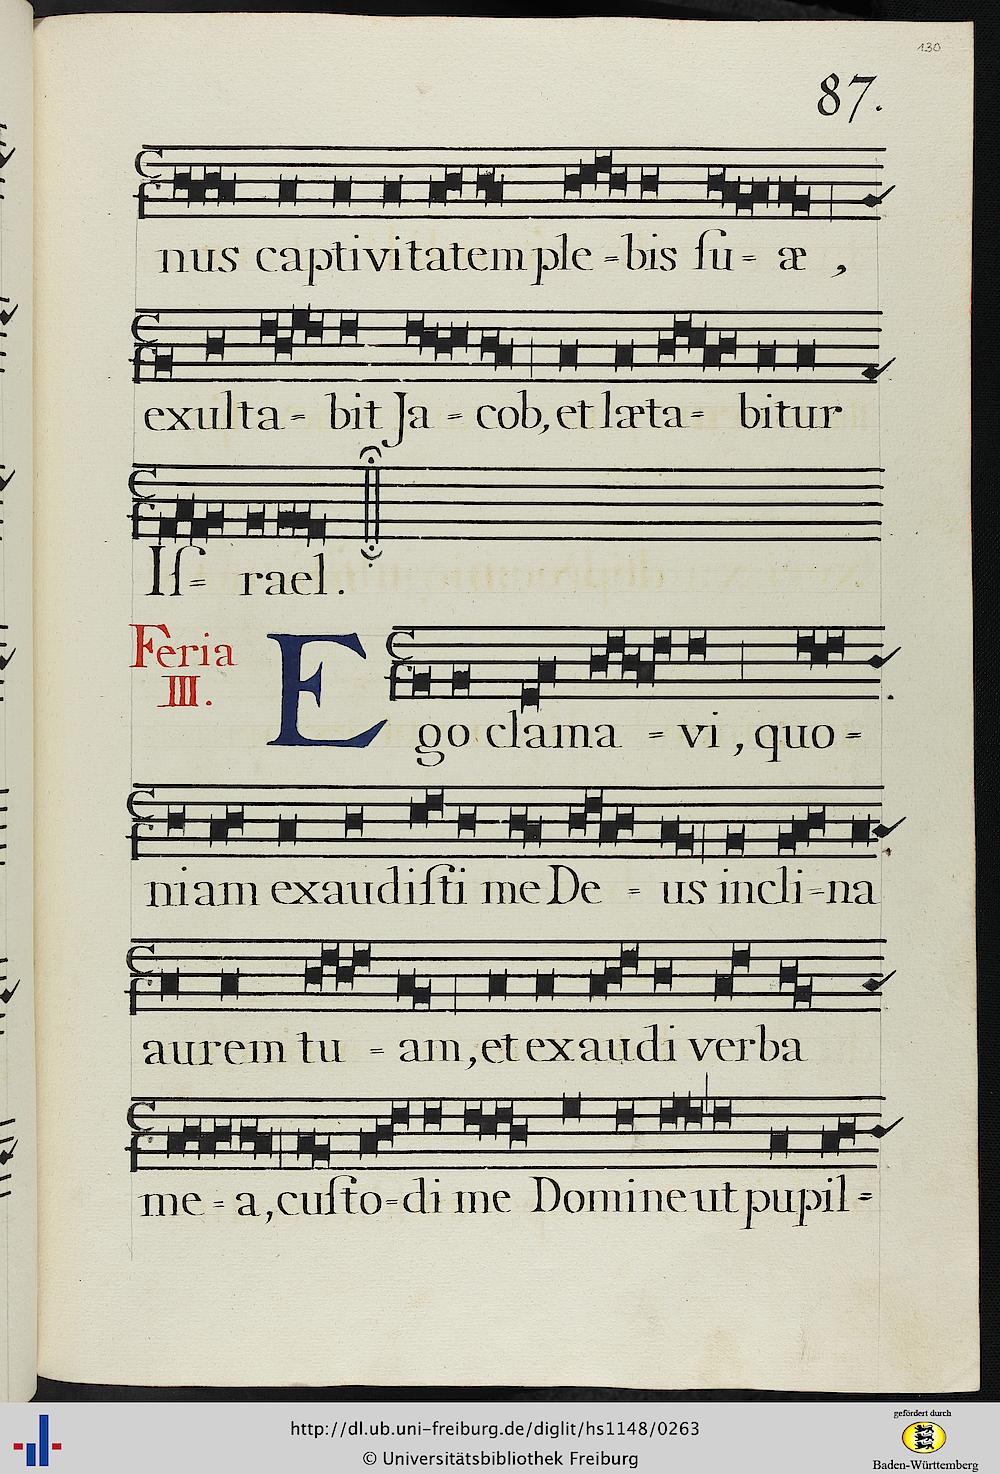 130
87.
nus captivitatem ple=bis ſu= æ ,
exulta= bit Ja = cob, et læta= bitur
Iſ= rael.
Feria
III.
Ego clama = vi , quo=
niam exaudiſti me De = us incli=na
aurem tu = am, et exaudi verba
me = a, cuſto=di me Domine ut pupil=
http://dl.ub.uni-freiburg.de/diglit/hs1148/0263
© Universitätsbibliothek Freiburg
gefördert durch
Baden-Württemberg